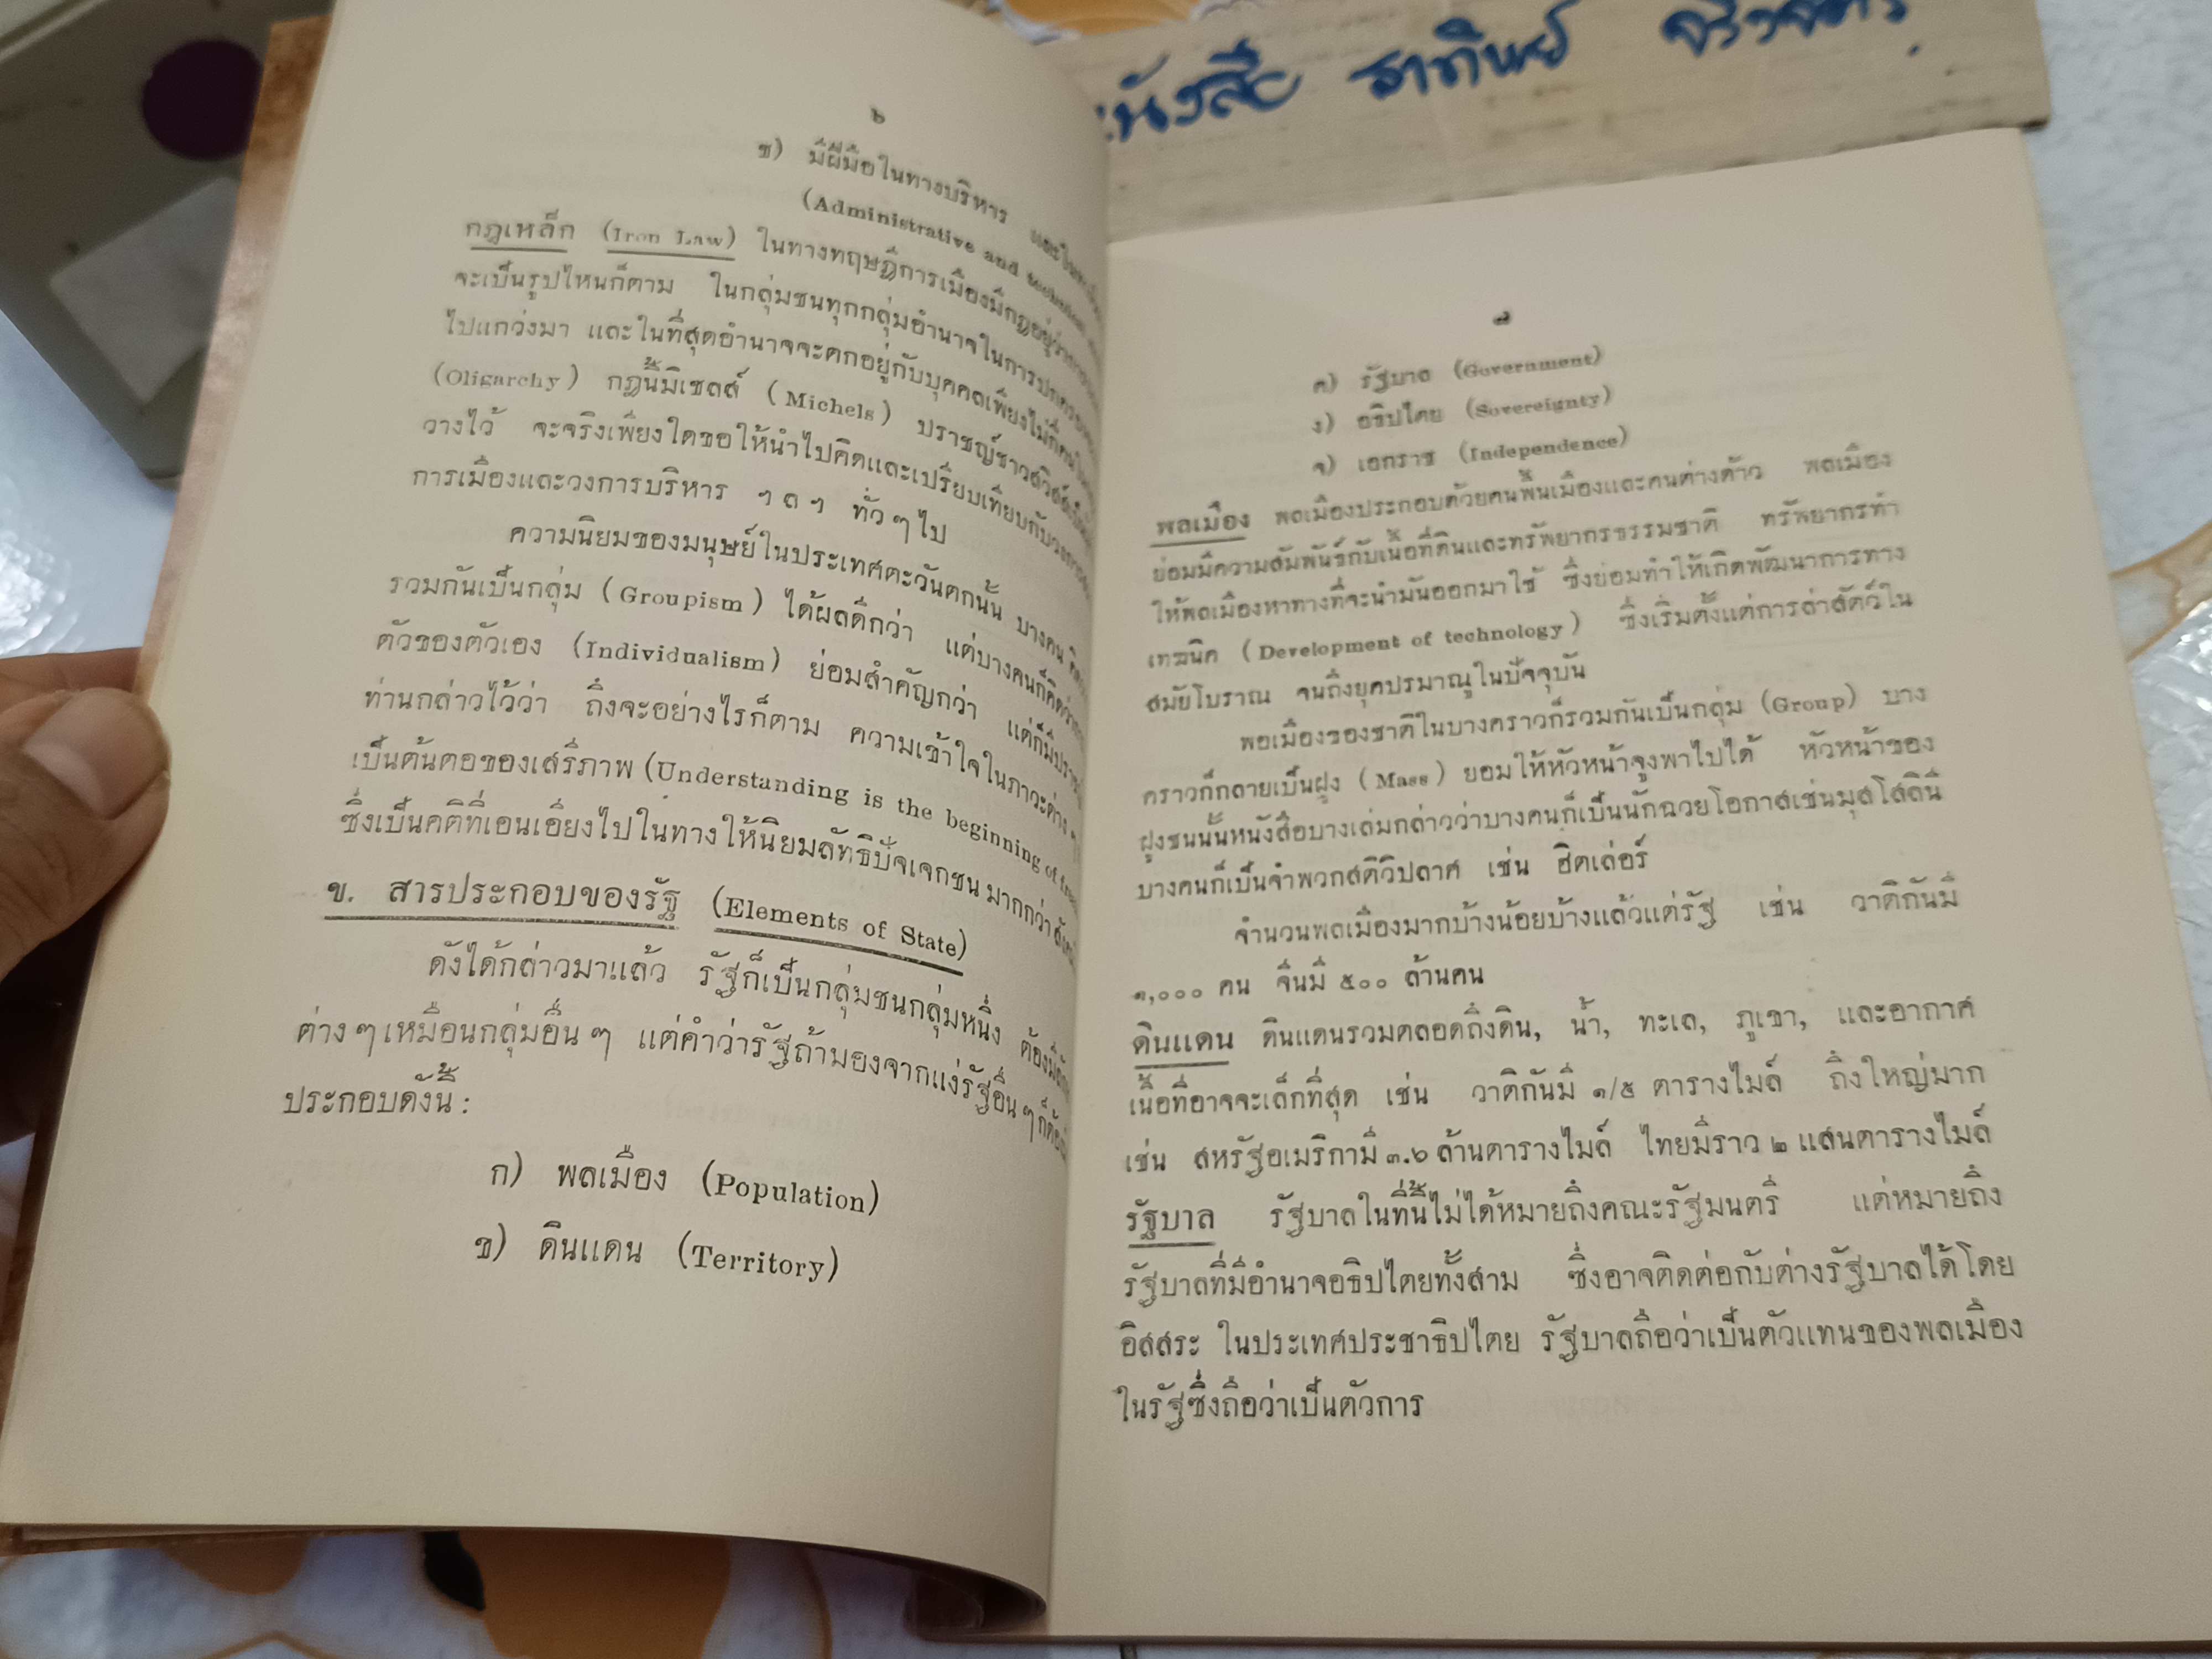 หนังสือ ธาทิพย์
๖
ช) มีฝีมือในทางบริหาร และใน
(Administrative and technical
กฎเหล็ก (Iron Law) ในทางทฤษฎีการเมืองมีกฎอยู่ว่า
จะเป็นรูปไหนก็ตาม ในกลุ่มชนทุกกลุ่มอำนาจในการปกครอง
ไปแกว่งมา และในที่สุดอำนาจจะตกอยู่กับบุคคลเพียงไม่กี่คน
(Oligarchy) กฎนี้มิเชลส์ (Michels) ปราชญ์ชาวสวิส
วางไว้ จะจริงเพียงใดขอให้นำไปคิดและเปรียบเทียบกับวงการ
การเมืองและวงการบริหาร ฯลฯ ทั่วๆไป
ความนิยมของมนุษย์ในประเทศตะวันตกนั้น บางคน
รวมกันเป็นกลุ่ม (Groupism) ได้ผลดีกว่า แต่บางคนก็คิดว่า
ตัวของตัวเอง (Individualism) ย่อมสำคัญกว่า แต่ก็มีปราชญ์
ท่านกล่าวไว้ว่า ถึงจะอย่างไรก็ตาม ความเข้าใจในภาวะต่าง ๆ
เป็นต้นตอของเสรีภาพ (Understanding is the beginning of
ซึ่งเป็นคติที่เอนเอียงไปในทางให้นิยมลัทธิปัจเจกชน มากกว่า
ข. สารประกอบของรัฐ (Elements of State)
ดังได้กล่าวมาแล้ว รัฐก็เป็นกลุ่มชนกลุ่มหนึ่ง ต้องมี
ต่างๆเหมือนกลุ่มอื่นๆ แต่คำว่ารัฐถ้ามองจากแง่รัฐอื่นๆก็ต้อง
ประกอบดังนี้ :
ก) พลเมือง (Population)
ข) ดินแดน (Territory)
๗
ค) รัฐบาล (Government)
ง) อธิปไตย (Sovereignty)
จ) เอกราช (Independence)
พลเมือง พลเมืองประกอบด้วยคนพื้นเมืองและคนต่างด้าว พลเมือง
ย่อมมีความสัมพันธ์กับเนื้อที่ดินและทรัพยากรธรรมชาติ ทรัพยากรทำ
ให้พลเมืองหาทางที่จะนำมันออกมาใช้ ซึ่งย่อมทำให้เกิดพัฒนาการทาง
เทฆนิค (Development of technology) ซึ่งเริ่มตั้งแต่การล่าสัตว์ใน
สมัยโบราณ จนถึงยุคปรมาณูในปัจจุบัน
พลเมืองของชาติในบางคราวก็รวมกันเป็นกลุ่ม (Group) บาง
คราวก็กลายเป็นฝูง (Mass) ยอมให้หัวหน้าจูงพาไปได้ หัวหน้าของ
ฝูงชนนั้นหนังสือบางเล่มกล่าวว่าบางคนก็เป็นนักฉวยโอกาสเช่นมุสโสลินี
บางคนก็เป็นจำพวกสติวิปลาศ เช่น ฮิตเล่อร์
จำนวนพลเมืองมากบ้างน้อยบ้างแล้วแต่รัฐ เช่น วาติกันมี
๑,๐๐๐ คน จีนมี ๕๐๐ ล้านคน
ดินแดน ดินแดนรวมตลอดถึงดิน, น้ำ, ทะเล, ภูเขา, และอากาศ
เนื้อที่อาจจะเล็กที่สุด เช่น วาติกันมี ๑/๕ ตารางไมล์ ถึงใหญ่มาก
เช่น สหรัฐอเมริกามี ๓.๖ ล้านตารางไมล์ ไทยมีราว ๒ แสนตารางไมล์
รัฐบาล รัฐบาลในที่นี้ไม่ได้หมายถึงคณะรัฐมนตรี แต่หมายถึง
รัฐบาลที่มีอำนาจอธิปไตยทั้งสาม ซึ่งอาจติดต่อกับต่างรัฐบาลได้โดย
อิสสระ ในประเทศประชาธิปไตย รัฐบาลถือว่าเป็นตัวแทนของพลเมือง
ในรัฐซึ่งถือว่าเป็นตัวการ